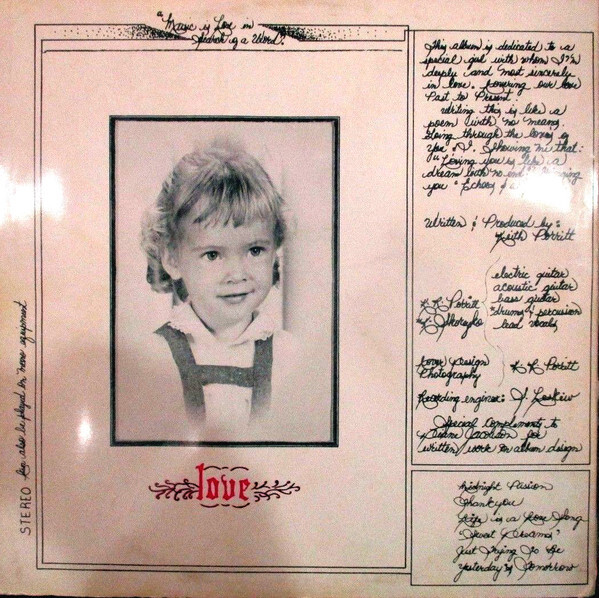 "Music is Love in
Search of a Word."
This album is dedicated to a
special girl with whom I'm
deeply and most sincerely
in love. our love
Past to Present.
Writing this is like a
poem with no means.
Going through the loves of
You & I. Showing me that:
"Loving you is like a
dream with no end
you" Echoes
Written & Produced by:
Keith Porritt
electric guitar
acoustic guitar
bass guitar
drums & percusion
lead vocals
K.K. Porritt
Cover Design
Photography
K K Porritt
Recording engineer:
Special compliments to
for
written work on album design
Midnight Pasion
Thank you
Life is a Love Song
"Sweet Dreams"
Just Trying To Be
Yesterday's Tomorrow
love
STEREO can also be played on mono equipment